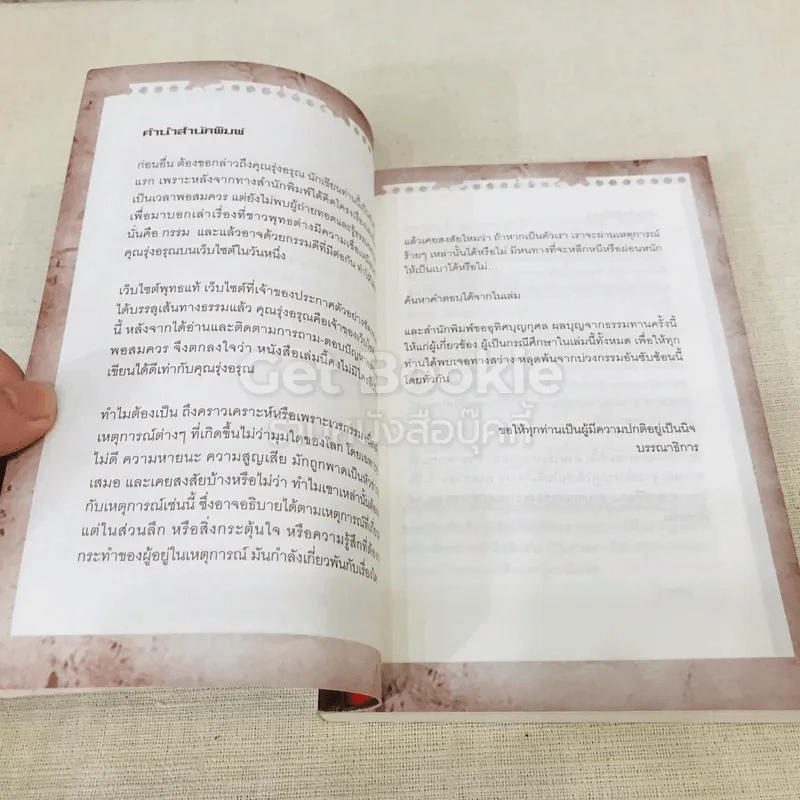 คำนำสำนักพิมพ์
ก่อนอื่น ต้องขอกล่าวถึงคุณรุ่งอรุณ นักเขียนท่านนี้เป็น
แรก เพราะหลังจากทางสำนักพิมพ์ได้คิดโครงเรื่อง
เป็นเวลาพอสมควร แต่ยังไม่พบผู้ถ่ายทอดและรู้
เพื่อมาบอกเล่าเรื่องที่ชาวพุทธต่างมีความเชื่อ
นั่นคือ กรรม และแล้วอาจด้วยกรรมดีที่มีต่อกัน ทำให้
คุณรุ่งอรุณบนเว็บไซต์ในวันหนึ่ง
เว็บไซต์พุทธแท้ เว็บไซต์ที่เจ้าของประกาศตัวอย่าง
ได้บรรลุเส้นทางธรรมแล้ว คุณรุ่งอรุณคือเจ้าของเว็บไซต์
นี้ หลังจากได้อ่านและติดตามการถาม-ตอบปัญหา
พอสมควร จึงตกลงใจว่า หนังสือเล่มนี้คงไม่มีใคร
เขียนได้ดีเท่ากับคุณรุ่งอรุณ
ทำไมต้องเป็น ถึงคราวเคราะห์หรือเพราะเวรกรรม
เหตุการณ์ต่างๆ ที่เกิดขึ้นไม่ว่ามุมใดของโลก โดยเฉพาะ
ไม่ดี ความหายนะ ความสูญเสีย มักถูกพาดเป็นหัวข่าว
เสมอ และเคยสงสัยบ้างหรือไม่ว่า ทำไมเขาเหล่านั้นต้อง
กับเหตุการณ์เช่นนี้ ซึ่งอาจอธิบายได้ตามเหตุการณ์ที่
แต่ในส่วนลึก หรือสิ่งกระตุ้นใจ หรือความรู้สึกที่ต้อง
กระทำของผู้อยู่ในเหตุการณ์ มันกำลังเกี่ยวพันกับเรื่องใด
แล้วเคยสงสัยไหมว่า ถ้าหากเป็นตัวเรา เราจะผ่านเหตุการณ์
ร้ายๆ เหล่านั้นได้หรือไม่ มีหนทางที่จะหลีกหนีหรือผ่อนหนัก
ให้เป็นเบาได้หรือไม่...
ค้นหาคำตอบได้จากในเล่ม
และสำนักพิมพ์ขออุทิศบุญกุศล ผลบุญจากธรรมทานครั้งนี้
ให้แก่ผู้เกี่ยวข้อง ผู้เป็นกรณีศึกษาในเล่มนี้ทั้งหมด เพื่อให้ทุก
ท่านได้พบเจอทางสว่าง หลุดพ้นจากบ่วงกรรมอันซับซ้อนนี้
โดยทั่วกัน
ขอให้ทุกท่านเป็นผู้มีความปกติอยู่เป็นนิจ
บรรณาธิการ
Get Bookie
ร้านหนังสือบุ๊คกี้